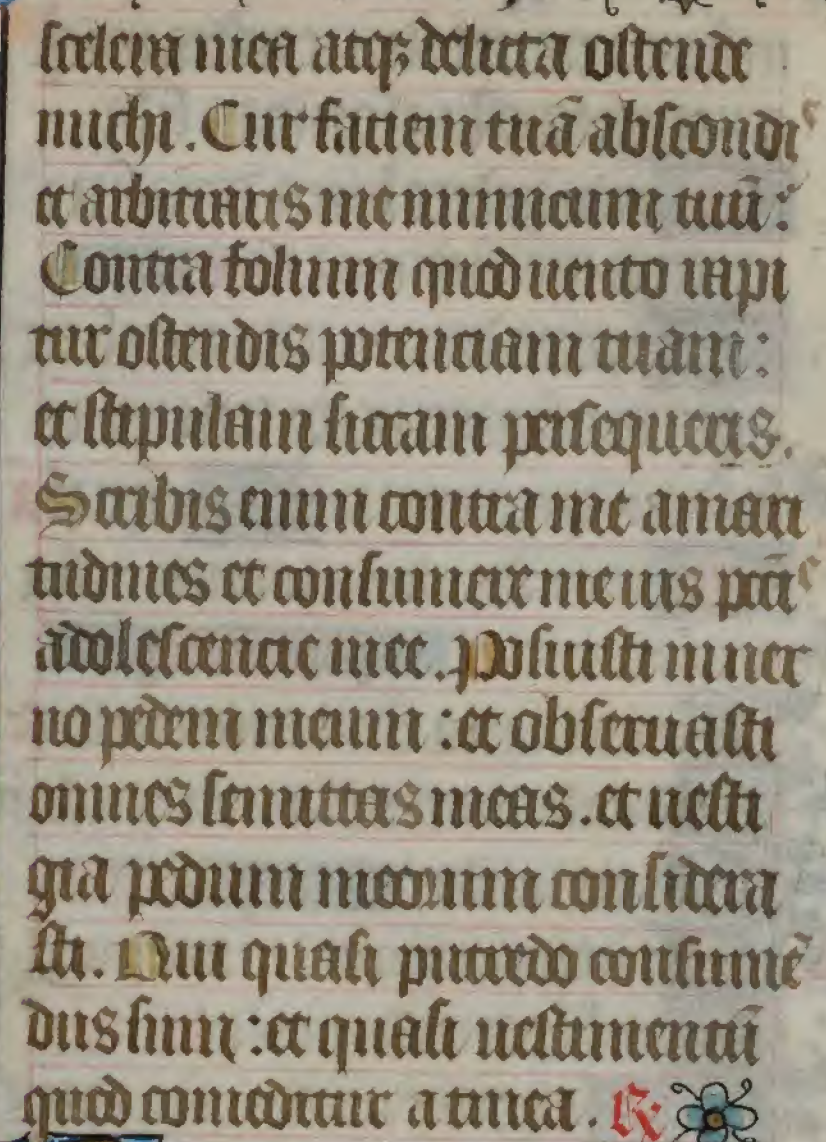 scelera mea atqꝫ delicta ostende
michi. Cur faciem tuā abscondis
et arbitraris me inimicum tuū:
Contra folium quod uento rapi
tur ostendis potenciam tuam:
et stipulam siccam persequeris.
Scribis enim contra me amari
tudines et consumere me uis pctīs
adolescencie mee. Posuisti in ner
uo pedem meum : et obseruasti
omnes semittas meas . et uesti
gia pedum meorum considera
sti. Qui quasi putredo consumē
dus sum : et quasi uestimentū
quod comeditur a tinea. R.